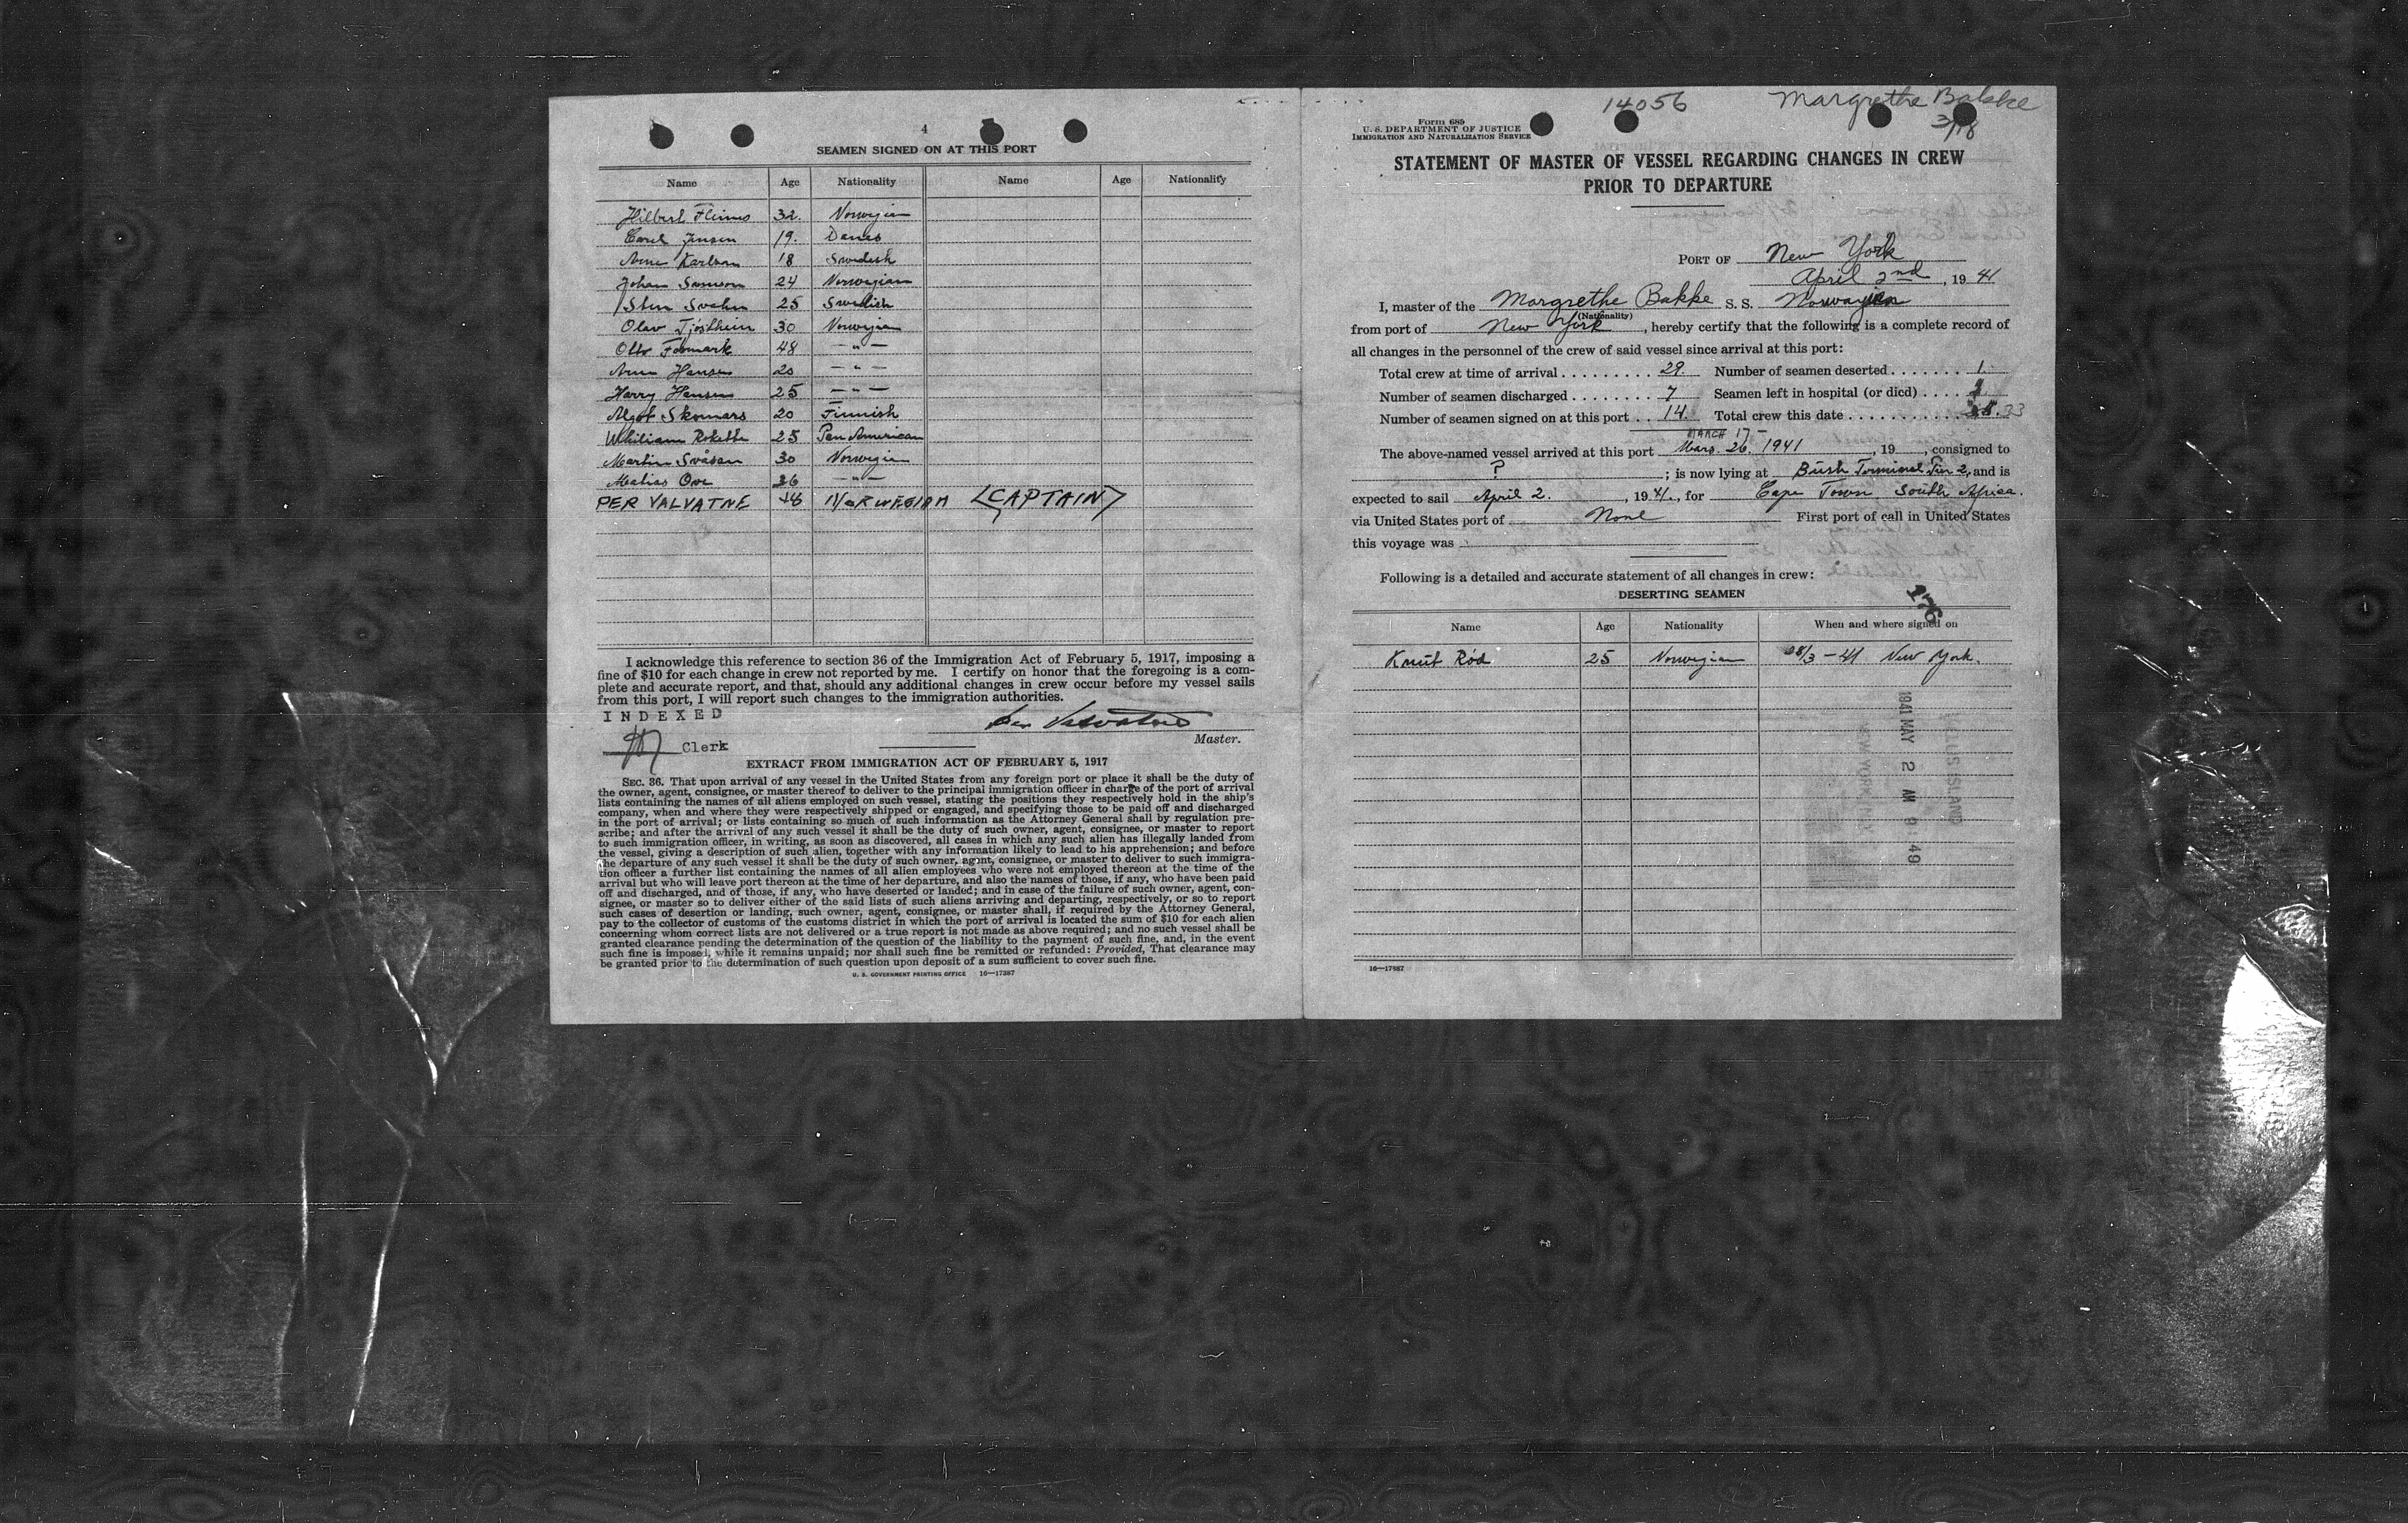 4
SEAMEN SIGNED ON AT THIS PORT
Name Age Nationality Name Age Nationality
32. Norwegian
Jensen 19. Danes
Arne Karlson 18 Swedish
Johan 24 Norwegian
Sten 25 Swedish
Olav Tjøstheim 30 Norwegian
Otto 48 — " —
Arne Hansen 20 — " —
Harry Hansen 25 — " —
Algot Skomars 20 Finnish
25 Pan American
Martin Svåsan 30 Norwegian
Matias Ove 36 — " —
PER VALVATNE 48 NORWEGIAN <CAPTAIN>
I acknowledge this reference to section 36 of the Immigration Act of February 5, 1917, imposing a
fine of $10 for each change in crew not reported by me. I certify on honor that the foregoing is a com-
plete and accurate report, and that, should any additional changes in crew occur before my vessel sails
from this port, I will report such changes to the immigration authorities.
INDEXED
Per Valvatne
Clerk
Master.
EXTRACT FROM IMMIGRATION ACT OF FEBRUARY 5, 1917
SEC. 36. That upon arrival of any vessel in the United States from any foreign port or place it shall be the duty of
the owner, agent, consignee, or master thereof to deliver to the principal immigration officer in charge of the port of arrival
lists containing the names of all aliens employed on such vessel, stating the positions they respectively hold in the ship's
company, when and where they were respectively shipped or engaged, and specifying those to be paid off and discharged
in the port of arrival; or lists containing so much of such information as the Attorney General shall by regulation pre-
scribe; and after the arrival of any such vessel it shall be the duty of such owner, agent, consignee, or master to report
to such immigration officer, in writing, as soon as discovered, all cases in which any such alien has illegally landed from
the vessel, giving a description of such alien, together with any information likely to lead to his apprehension; and before
the departure of any such vessel it shall be the duty of such owner, agent, consignee, or master to deliver to such immigra-
tion officer a further list containing the names of all alien employees who were not employed thereon at the time of the
arrival but who will leave port thereon at the time of her departure, and also the names of those, if any, who have been paid
off and discharged, and of those, if any, who have deserted or landed; and in case of the failure of such owner, agent, con-
signee, or master so to deliver either of the said lists of such aliens arriving and departing, respectively, or so to report
such cases of desertion or landing, such owner, agent, consignee, or master shall, if required by the Attorney General,
pay to the collector of customs of the customs district in which the port of arrival is located the sum of $10 for each alien
concerning whom correct lists are not delivered or a true report is not made as above required; and no such vessel shall be
granted clearance pending the determination of the question of the liability to the payment of such fine, and, in the event
such fine is imposed, while it remains unpaid; nor shall such fine be remitted or refunded: Provided, That clearance may
be granted prior to the determination of such question upon deposit of a sum sufficient to cover such fine.
U. S. GOVERNMENT PRINTING OFFICE 16—17387
14056 Margrethe Bakke
3/18
Form 685
U. S. DEPARTMENT OF JUSTICE
IMMIGRATION AND NATURALIZATION SERVICE
STATEMENT OF MASTER OF VESSEL REGARDING CHANGES IN CREW
PRIOR TO DEPARTURE
PORT OF New York
April 2nd, 1941
I, master of the Margrethe Bakke S. S. Norwegian
(Nationality)
from port of New York, hereby certify that the following is a complete record of
all changes in the personnel of the crew of said vessel since arrival at this port:
Total crew at time of arrival . . . . . . . . . 29. Number of seamen deserted . . . . . . . 1.
Number of seamen discharged . . . . . . . . 7 Seamen left in hospital (or died) . . . .
Number of seamen signed on at this port . . 14. Total crew this date . . . . . . . . . . . 33
MARCH 17 —
The above-named vessel arrived at this port Mars. 26. 1941, 19, consigned to
?; is now lying at Bush Terminal Pier 2, and is
expected to sail April 2., 1941., for Cape Town South Africa.
via United States port of None First port of call in United States
this voyage was
Following is a detailed and accurate statement of all changes in crew:
DESERTING SEAMEN
176
Name Age Nationality When and where signed on
Knut Rød 25 Norwegian 28/3 — 41 New York.
1941 MAY 2 AM 9:49
ELLIS ISLAND
NEW YORK
16—17387